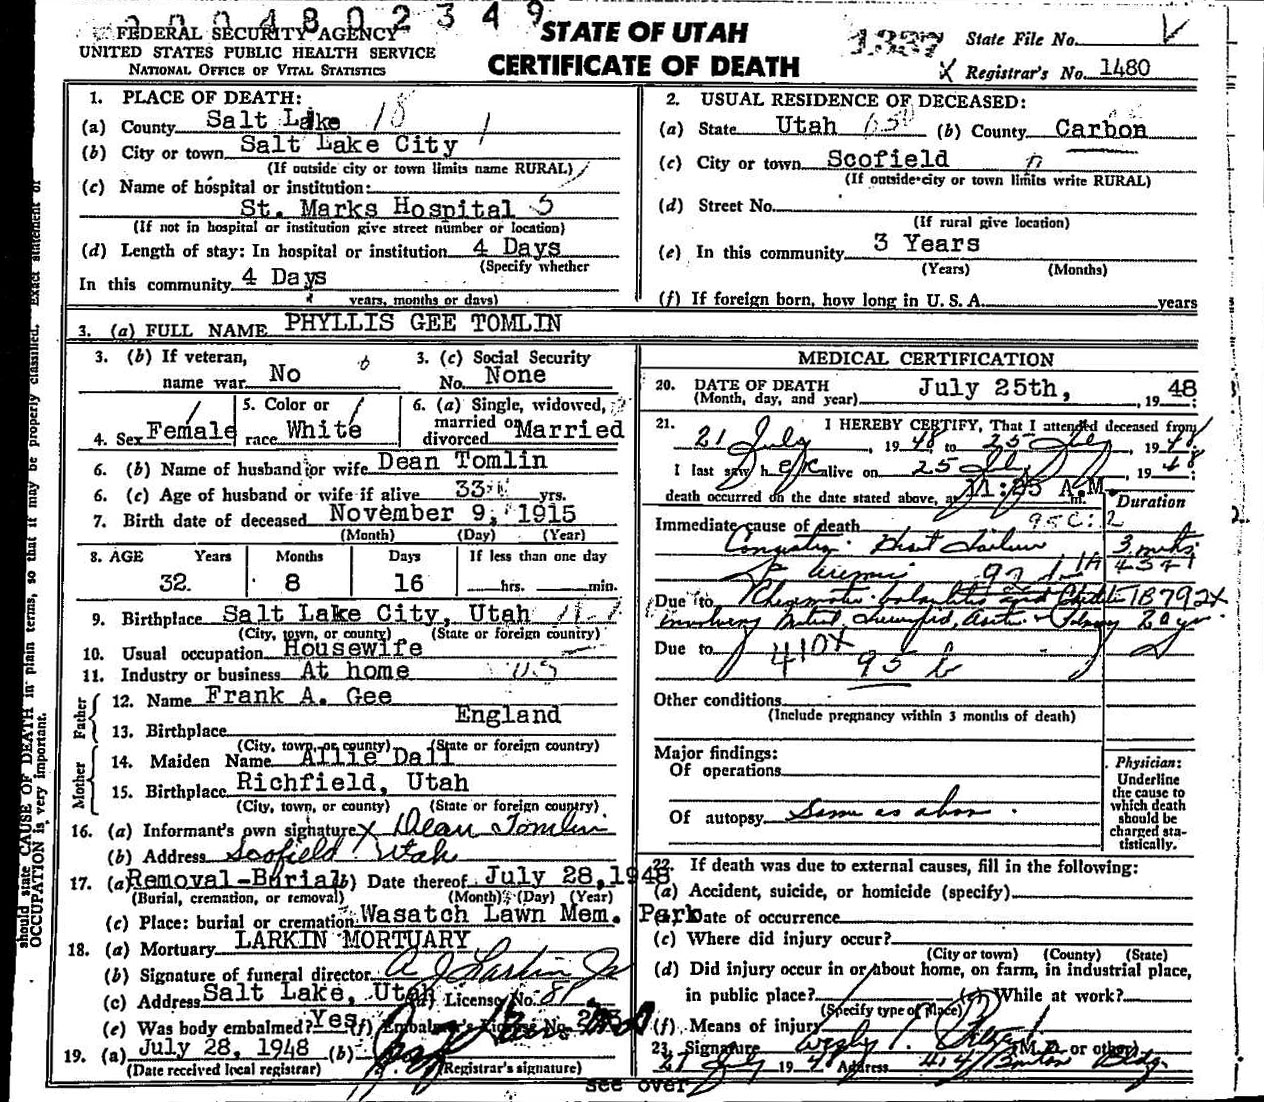 004802349
FEDERAL SECURITY AGENCY
UNITED STATES PUBLIC HEALTH SERVICE
NATIONAL OFFICE OF VITAL STATISTICS
STATE OF UTAH
CERTIFICATE OF DEATH
State File No.
Registrar's No. 1480
1. PLACE OF DEATH:
(a) County Salt Lake 18
(b) City or town Salt Lake City 1
(If outside city or town limits name RURAL)
(c) Name of hospital or institution:
St. Marks Hospital 5
(If not in hospital or institution give street number or location)
(d) Length of stay: In hospital or institution 4 Days
(Specify whether
In this community 4 Days
years, months or days)
2. USUAL RESIDENCE OF DECEASED:
(a) State Utah (b) County Carbon
(c) City or town Scofield
(If outside city or town limits write RURAL)
(d) Street No.
(If rural give location)
(e) In this community 3 Years
(Years) (Months)
(f) If foreign born, how long in U. S. A. years
3. (a) FULL NAME PHYLLIS GEE TOMLIN
3. (b) If veteran,
name war No
3. (c) Social Security
No. None
4. Sex Female
5. Color or
race White
6. (a) Single, widowed,
married or
divorced Married
6. (b) Name of husband or wife Dean Tomlin
6. (c) Age of husband or wife if alive 33 yrs.
7. Birth date of deceased November 9, 1915
(Month) (Day) (Year)
8. AGE Years Months Days If less than one day
32. 8 16 hrs. min.
9. Birthplace Salt Lake City, Utah
(City, town, or county) (State or foreign country)
10. Usual occupation Housewife
11. Industry or business At home US
Father
12. Name Frank A. Gee
13. Birthplace England
(City, town, or county) (State or foreign country)
Mother
14. Maiden Name Allie Dall
15. Birthplace Richfield, Utah
(City, town, or county) (State or foreign country)
16. (a) Informant's own signature X Dean Tomlin
(b) Address Scofield Utah
17. (a) Removal-Burial (b) Date thereof July 28, 1948
(Burial, cremation, or removal) (Month) (Day) (Year)
(c) Place: burial or cremation Wasatch Lawn Mem. Park
18. (a) Mortuary LARKIN MORTUARY
(b) Signature of funeral director A J Larkin Jr
(c) Address Salt Lake, Utah (d) License No.
(e) Was body embalmed? Yes (f) Embalmer's License No.
19. (a) July 28, 1948 (b)
(Date received local registrar) (Registrar's signature)
MEDICAL CERTIFICATION
20. DATE OF DEATH July 25th, 1948
(Month, day, and year)
21. I HEREBY CERTIFY, That I attended deceased from
21 July, 1948 to 25 July, 1948
I last saw her alive on 25 July, 1948
death occurred on the date stated above, at 11:25 A.M. m.
Duration
Immediate cause of death
Congestive Heart Failure 3 mnths
Due to Rheumatic
involving Mitral, 20 yr.
Due to
410X
95 b
Other conditions
(Include pregnancy within 3 months of death)
Major findings:
Of operations
Of autopsy Same as above.
Physician:
Underline
the cause to
which death
should be
charged sta-
tistically.
22. If death was due to external causes, fill in the following:
(a) Accident, suicide, or homicide (specify)
(b) Date of occurrence
(c) Where did injury occur?
(City or town) (County) (State)
(d) Did injury occur in or about home, on farm, in industrial place,
in public place? (e) While at work?
(Specify type of place)
(f) Means of injury
23. Signature (M. D. or other)
27 July 1948 Address 414 Boston Bldg.
see over
should state CAUSE OF DEATH in plain terms, so that it may be properly classified. Exact statement of
OCCUPATION is very important.